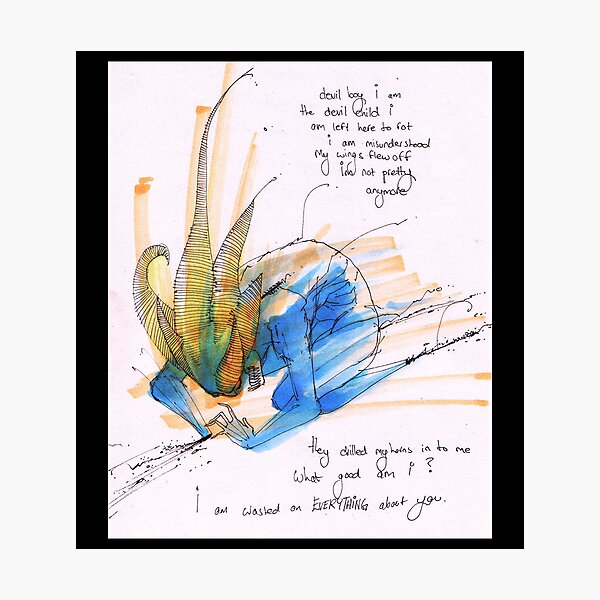 devil boy i am
the devil child i
am left here to rot
i am misunderstood
My wings flew off
im not pretty
anymore
they drilled my horns in to me
What good am i?
i am wasted on EVERYTHING about you.